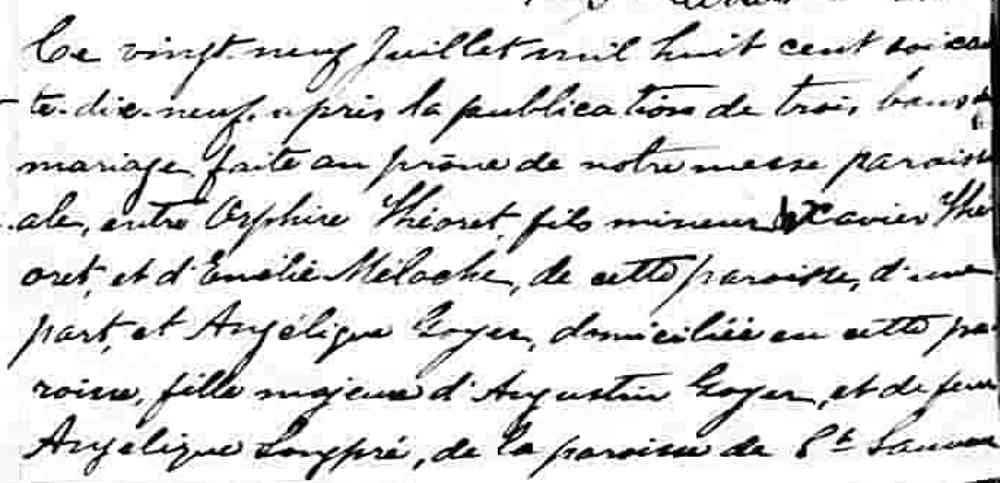 Ce vingt-neuf Juillet mil huit cent soixan
te-dix-neuf, après la publication de trois bans de
mariage, faite au prône de notre messe paroissi
ale, entre Orphire Théoret, fils mineur de Xavier Thé
oret, et d'Emélie Méloche, de cette paroisse, d'une
part, et Angélique Goyer, domiciliée en cette pa
roisse, fille majeure d'Augustin Goyer, et de feue
Angélique Longpré, de la paroisse de St Sauveur